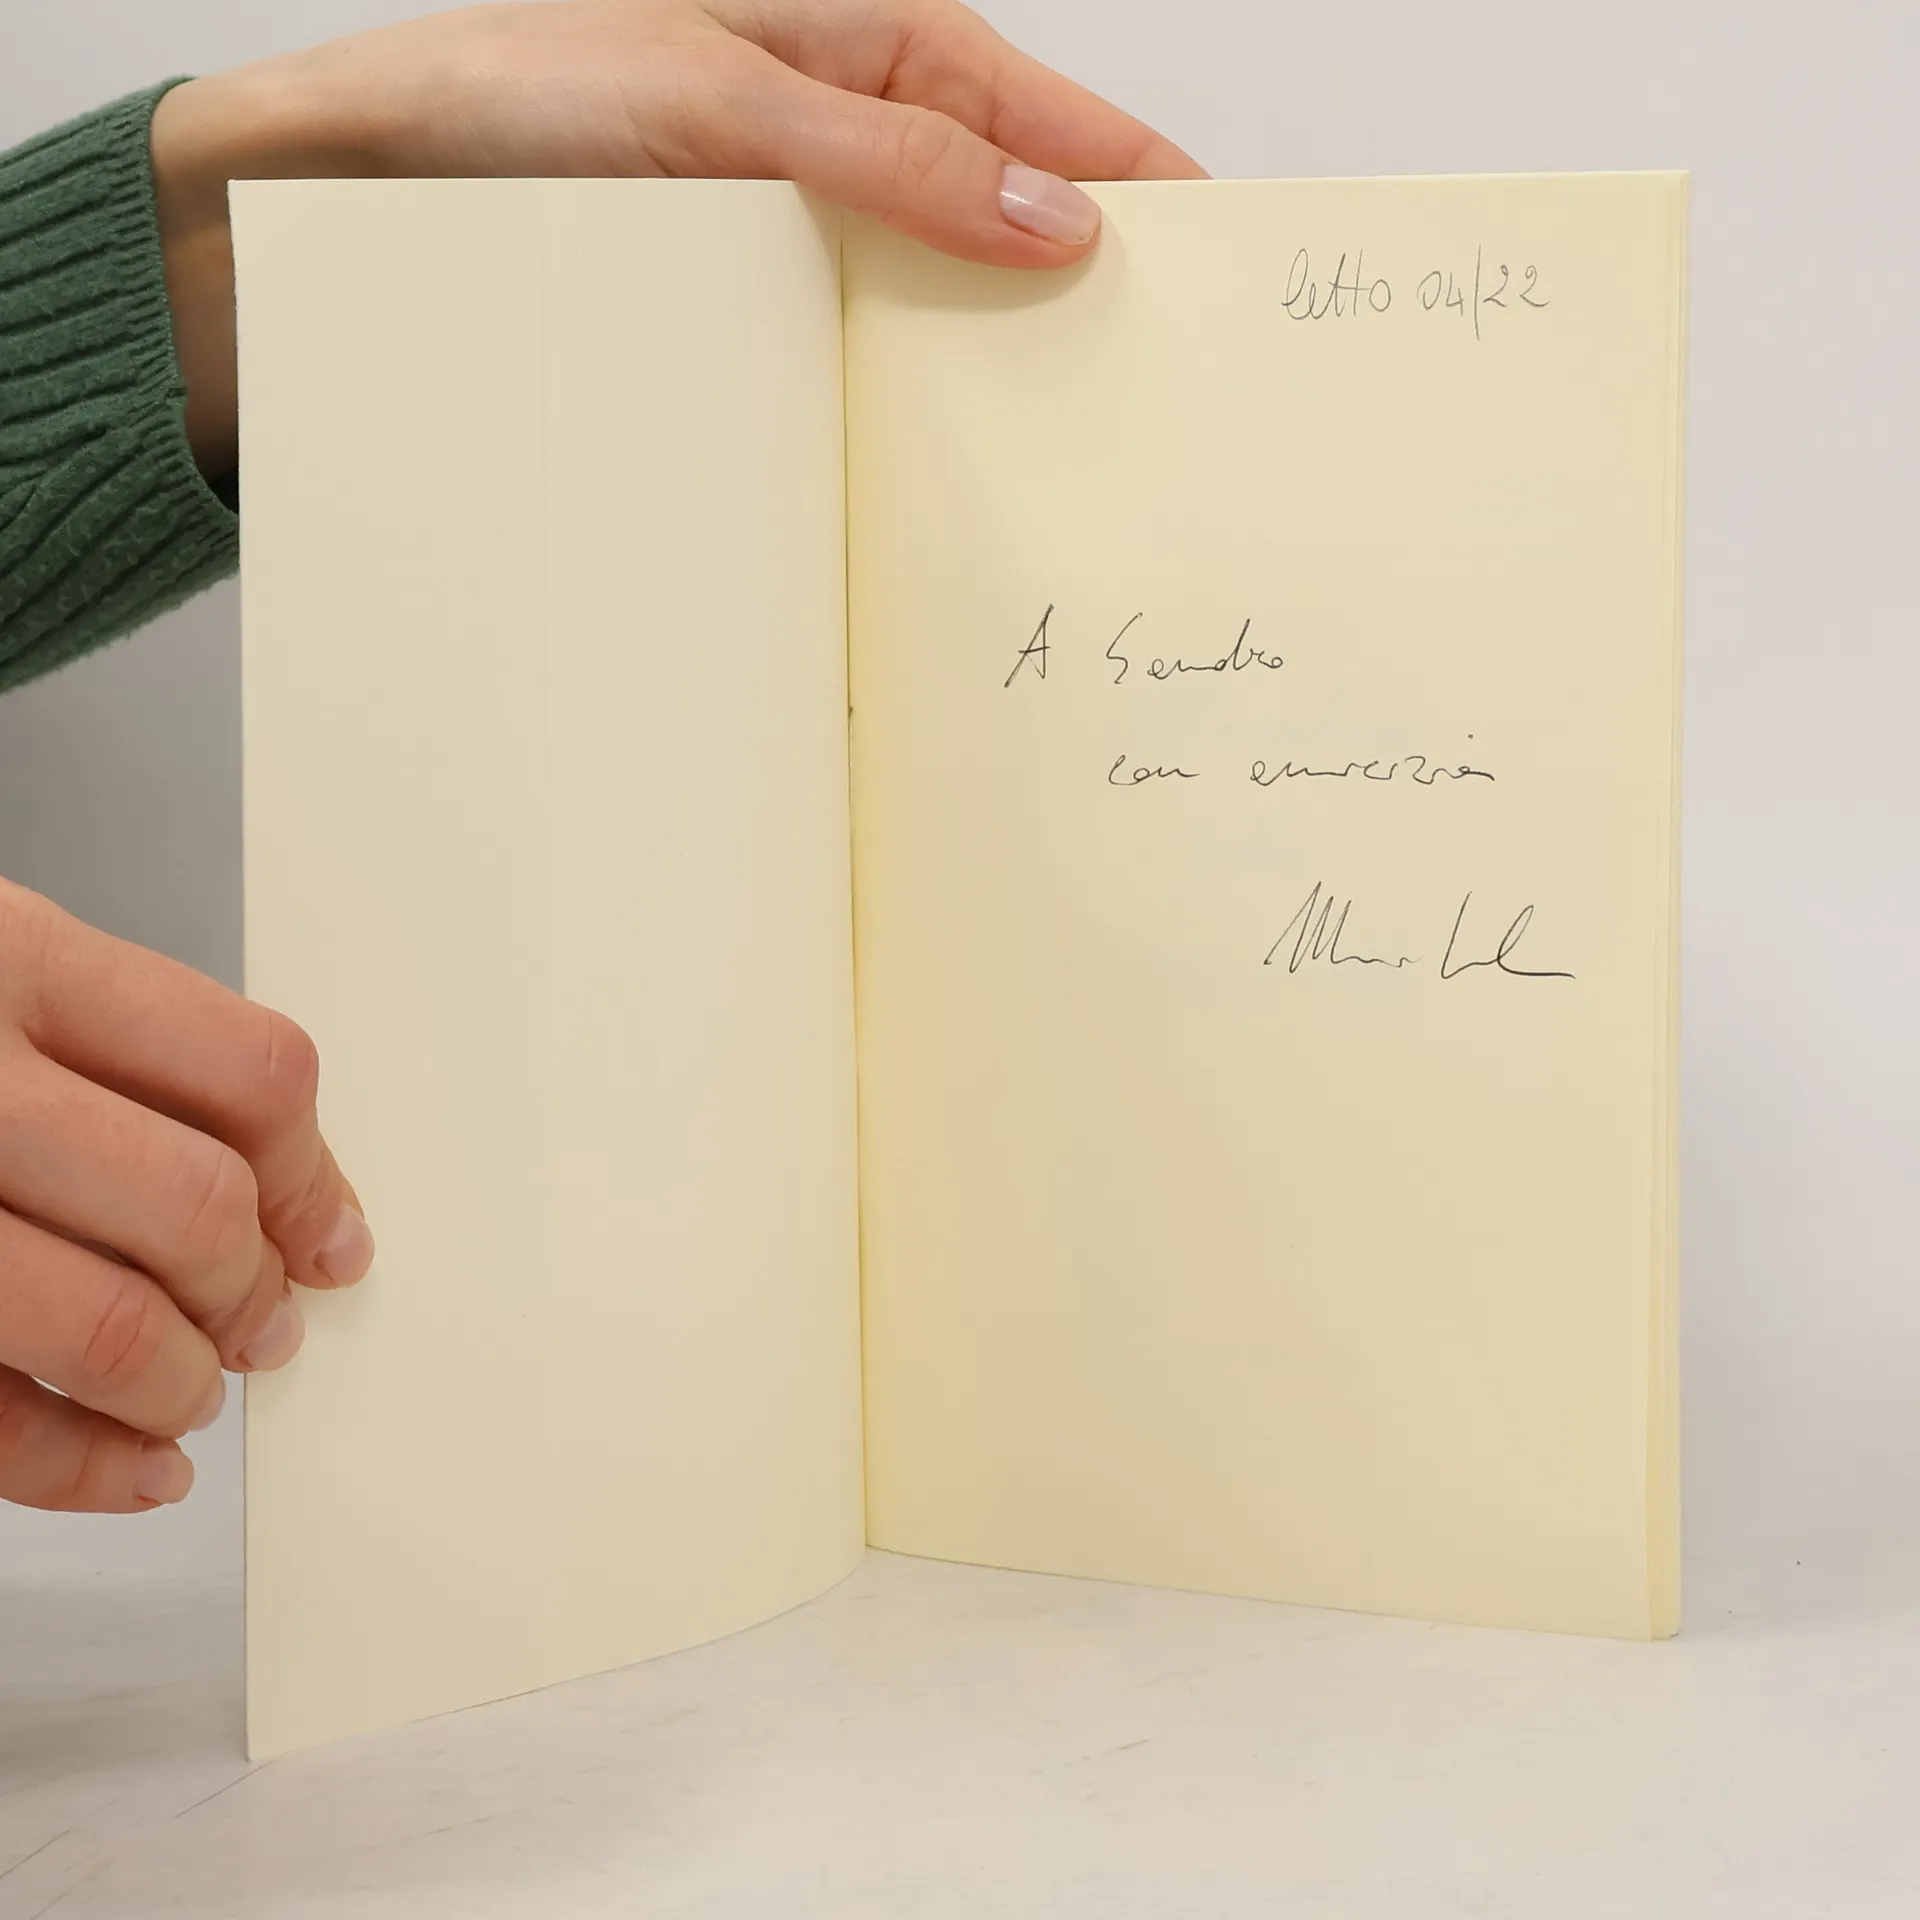 letto 04/22
A Sandro
con amicizia